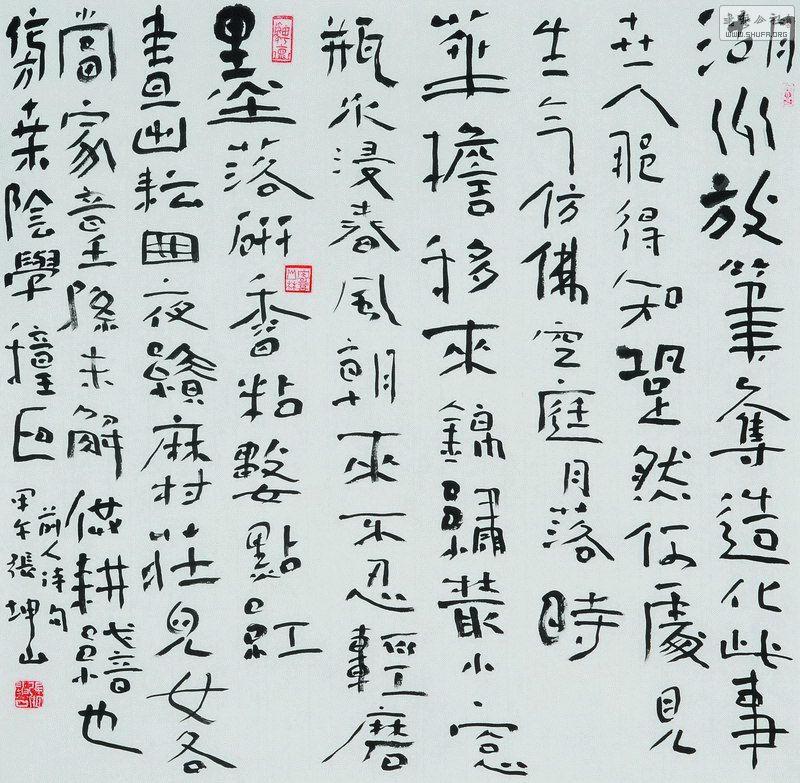 湖州放筆奪造化此事
世人那得知跫然何處見
生气仿佛空庭月落時
華擔移來錦繡叢小窓
瓶水浸春風朝來不忍輕磨
墨落研香粘數點紅
晝出耘田夜績麻村莊兒女各
當家童孫未解供耕織也
傍桑陰學種瓜
前人诗句
甲午張坤山
书法公社
WWW.SHUFA.ORG